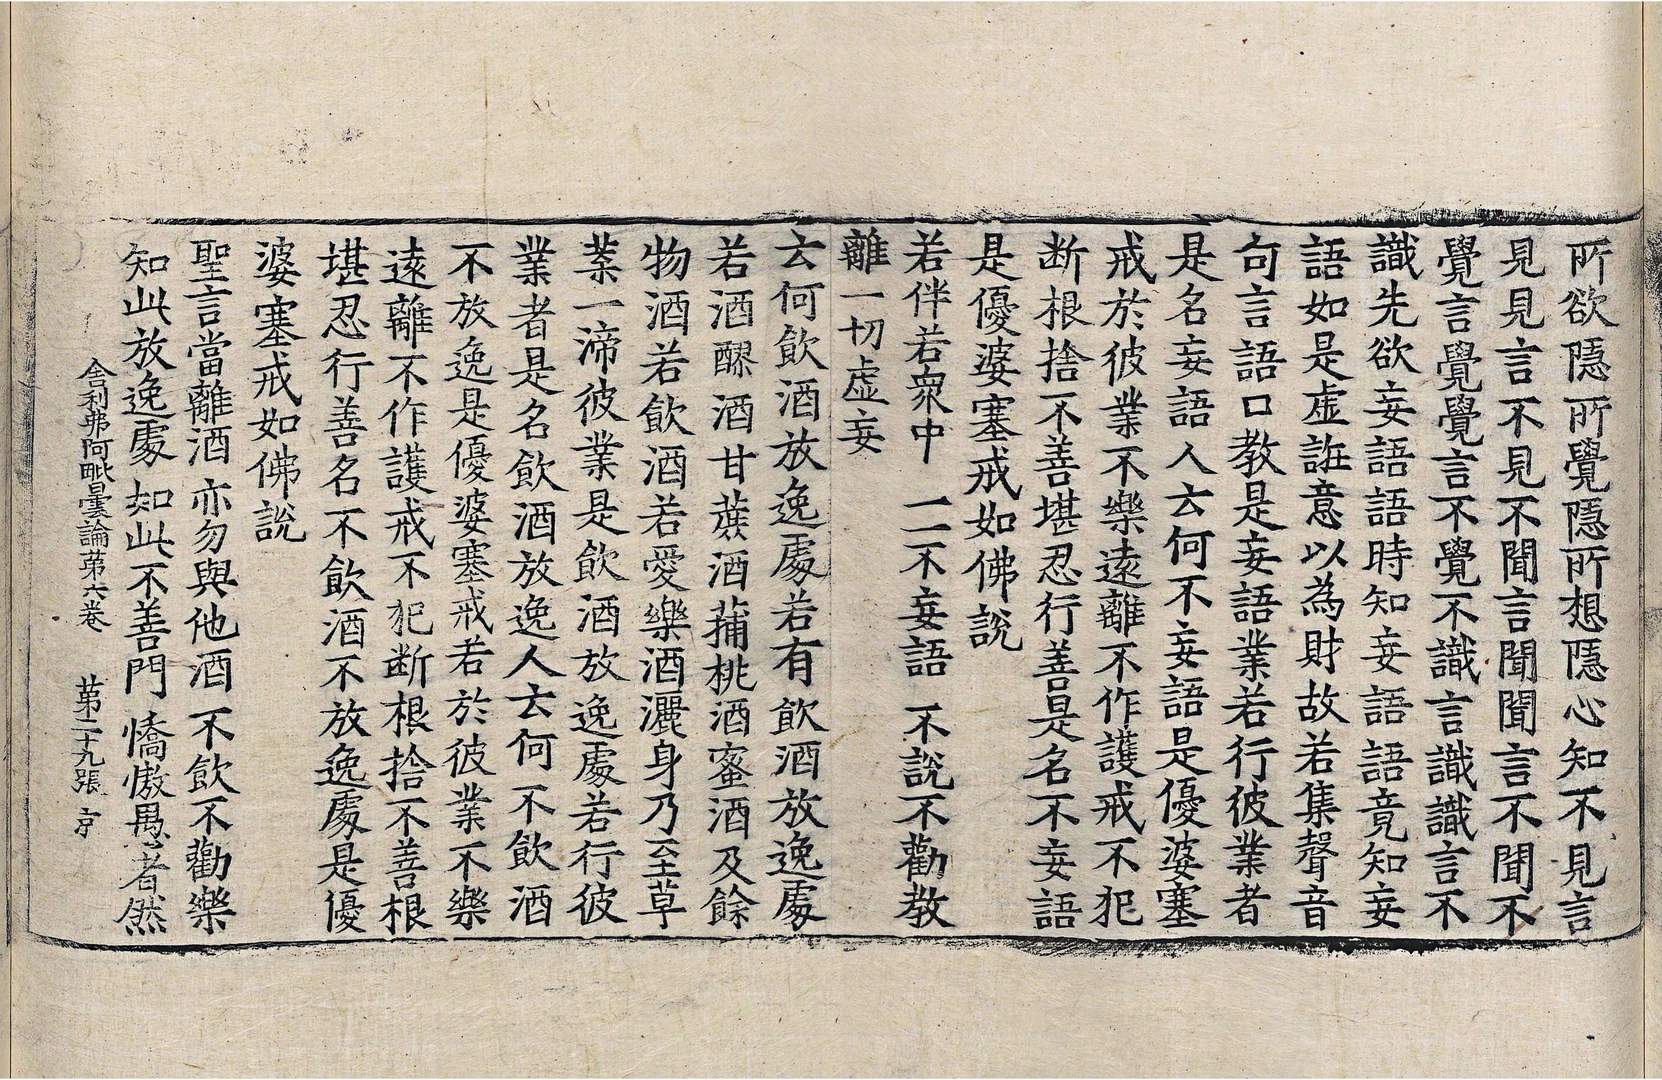 所欲隱所覺隱所想隱心知不見言
見見言不見不聞言聞聞言不聞不
覺言覺覺言不覺不識言識識言不
識先欲妄語語時知妄語語竟知妄
語如是虛誑意以為財故若集聲音
句言語口教是妄語業若行彼業者
是名妄語人云何不妄語是優婆塞
戒於彼業不樂遠離不作護戒不犯
断根捨不善堪忍行善是名不妄語
是優婆塞戒如佛說
若伴若衆中 一一不妄語 不說不勸教
離一切虛妄
云何飲酒放逸處若有飲酒放逸處
若酒醪酒甘蔗酒蒱桃酒蜜酒及餘
物酒若飲酒若愛樂酒灑身乃至草
葉一渧彼業是飲酒放逸處若行彼
業者是名飲酒放逸人云何不飲酒
不放逸是優婆塞戒若於彼業不樂
遠離不作護戒不犯断根捨不善根
堪忍行善名不飲酒不放逸處是優
婆塞戒如佛說
聖言當離酒 亦勿與他酒 不飲不勸樂
知此放逸處 如此不善門 憍慠愚者然
舍利弗阿毗曇論苐六卷 苐二十九張